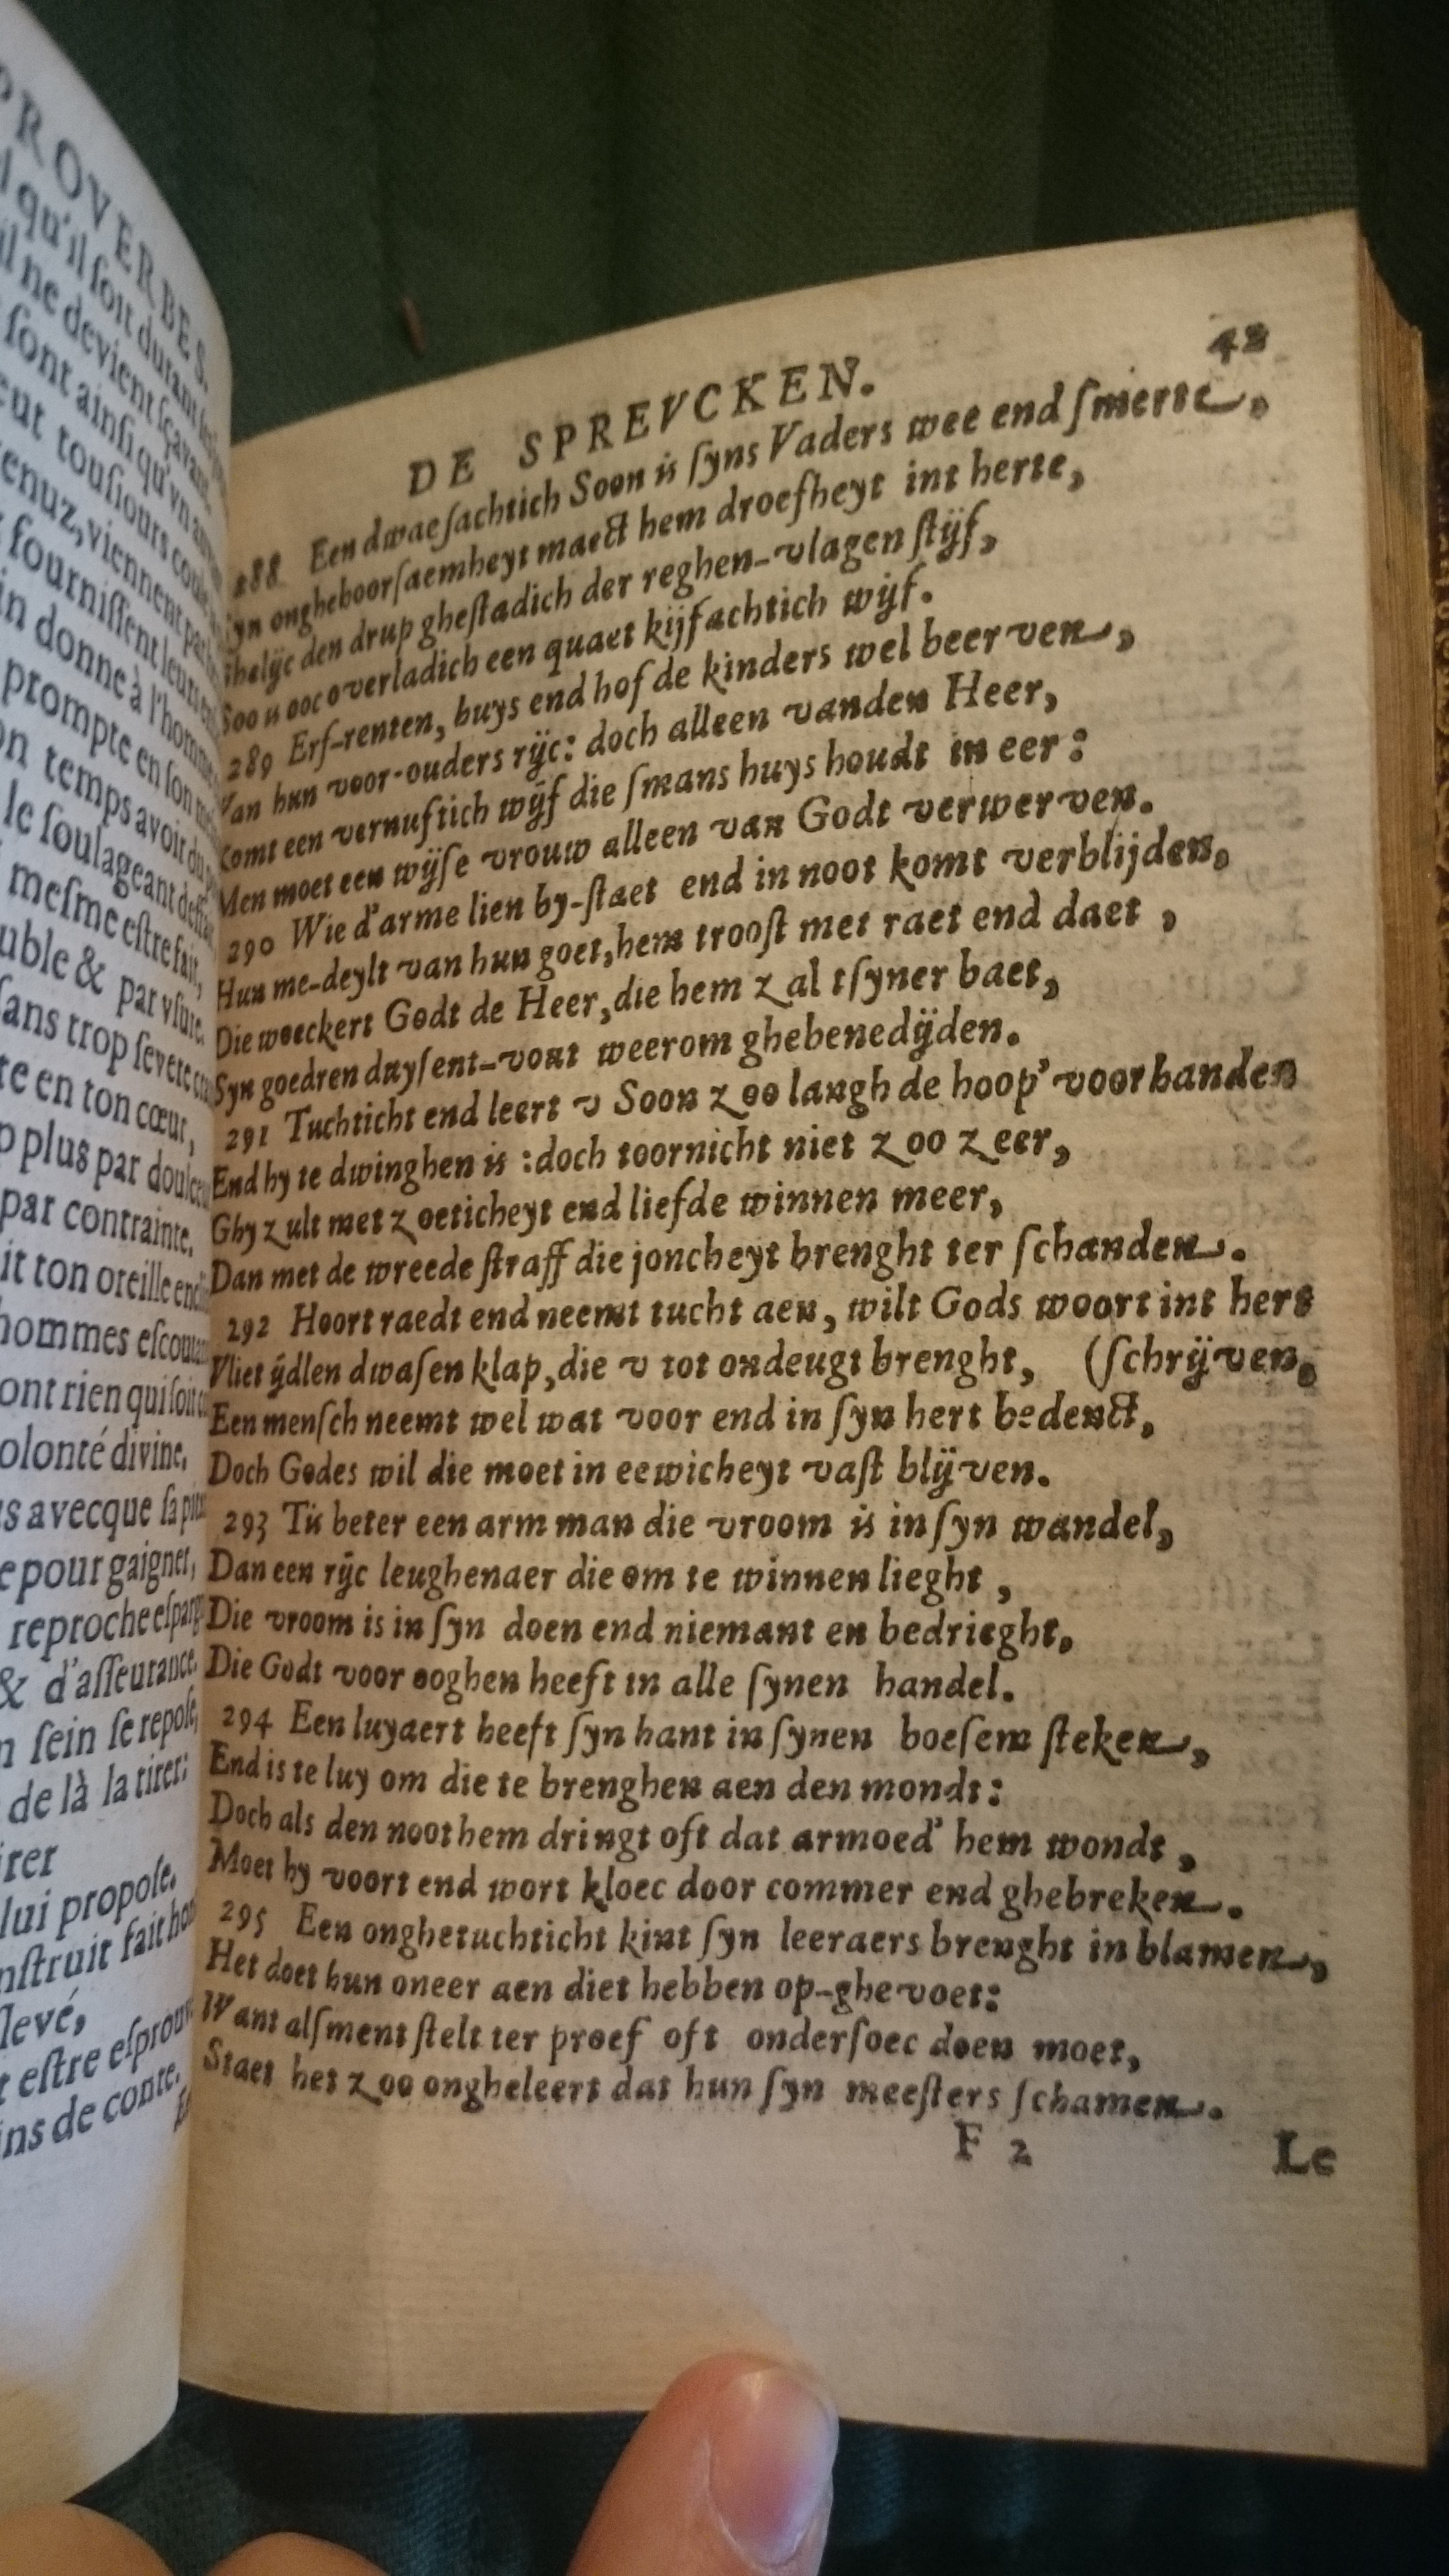 PROVERBES.
qu'il soit durant
il ne devient sçavant.
sont ainsi qu'vn
tousiours
viennent
fournissent leur
donne à l'homme
prompte en son
temps avoit du
le soulageant
mesme estre fait,
& par vsure.
sans trop severe
te en ton cœur,
plus par
par contrainte.
ton oreille
hommes
ont rien qui soit
volonté divine.
avecque sa
pour gaigner,
reproche
& d'asseurance.
sein se repose,
de là la tirer:
lui propose.
fait
levé,
estre
de conte.
DE SPREVCKEN. 42
288 Een dwaesachtich Soon is syns Vaders wee end smerte,
Syn ongheboorsaemheyt maect hem droefheyt int herte,
Ghelijc den drup ghestadich der reghen-vlagen stijf,
Soo is ooc overladich een quaet kijfachtich wijf.
289 Erf-renten, huys end hof de kinders wel beerven,
Van hun voor-ouders rijc: doch alleen vanden Heer,
Comt een vernuftich wijf die smans huys houdt in eer:
Men moet een wijse vrouw alleen van Godt verwerven.
290 Wie d'arme lien by-staet end in noot komt verblijden,
Hun me-deylt van hun goet, hem troost met raet end daet,
Die woeckert Godt de Heer, die hem zal tsyner baet,
Syn goedren duysent-vout weerom ghebenedijden.
291 Tuchticht end leert v Soon zoo langh de hoop' voorhanden
End hy te dwinghen is: doch toornicht niet zoo zeer,
Ghy zult met zoeticheyt end liefde winnen meer,
Dan met de wreede straff die joncheyt brenght ter schanden.
292 Hoort raedt end neemt tucht aen, wilt Gods woort int hert
Vliet ijdlen dwasen klap, die v tot ondeugt brenght, (schrijven,
Een mensch neemt wel wat voor end in syn hert bedenct,
Doch Godes wil die moet in eewicheyt vast blijven.
293 Tis beter een arm man die vroom is in syn wandel,
Dan een rijc leughenaer die om te winnen lieght,
Die vroom is in syn doen end niemant en bedrieght,
Die Godt voor ooghen heeft in alle synen handel.
294 Een luyaert heeft syn hant in synen boesem steken,
End is te luy om die te brenghen aen den mondt:
Doch als den noot hem dringt oft dat armoed' hem wondt,
Moet hy voort end wort kloec door commer end ghebreken.
295 Een onghetuchticht kint syn leeraers brenght in blamen,
Het doet hun oneer aen diet hebben op-ghevoet:
Want alsment stelt ter proef oft ondersoec doen moet,
Staet het zoo ongheleert dat hun syn meesters schamen.
F 2 Le